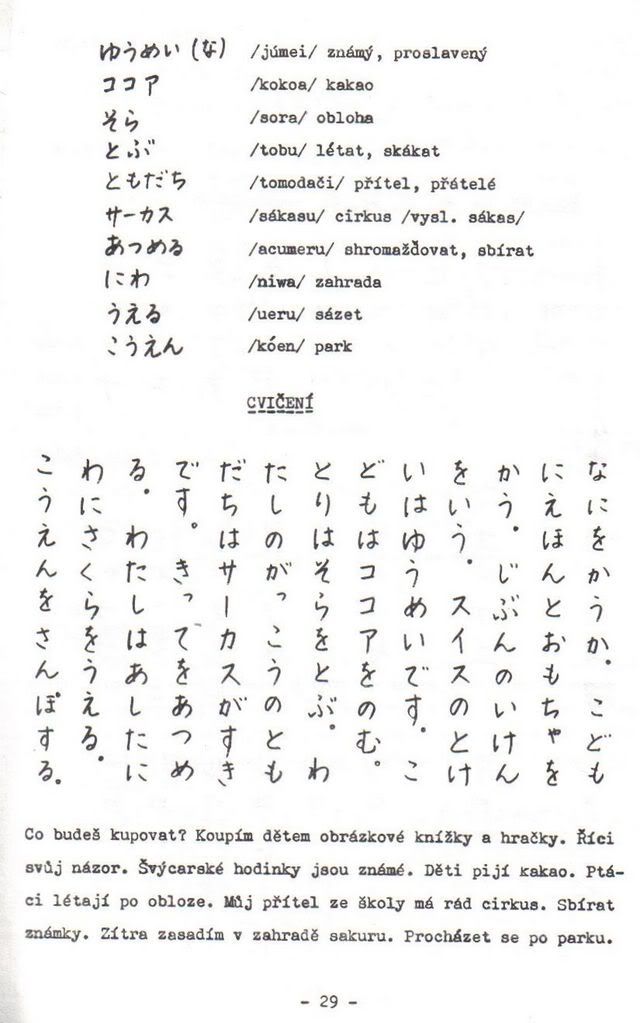 ゆうめい(な) /júmei/ známý, proslavený
ココア /kokoa/ kakao
そら /sora/ obloha
とぶ /tobu/ létat, skákat
ともだち /tomodači/ přítel, přátelé
サーカス /sákasu/ cirkus /vysl. sákas/
あつめる /acumeru/ shromažďovat, sbírat
にわ /niwa/ zahrada
うえる /ueru/ sázet
こうえん /kóen/ park
CVIČENÍ
なにをかうか。こども
にえほんとおもちゃを
かう。じぶんのいけん
をいう。スイスのとけ
いはゆうめいです。こ
どもはココアをのむ。
とりはそらをとぶ。わ
たしのがっこうのとも
だちはサーカスがすき
です。きってをあつめ
る。わたしはあしたに
わにさくらをうえる。
こうえんをさんぽする。
Co budeš kupovat? Koupím dětem obrázkové knížky a hračky. Říci
svůj názor. Švýcarské hodinky jsou známé. Děti pijí kakao. Ptá-
ci létají po obloze. Můj přítel ze školy má rád cirkus. Sbírat
známky. Zítra zasadím v zahradě sakuru. Procházet se po parku.
- 29 -